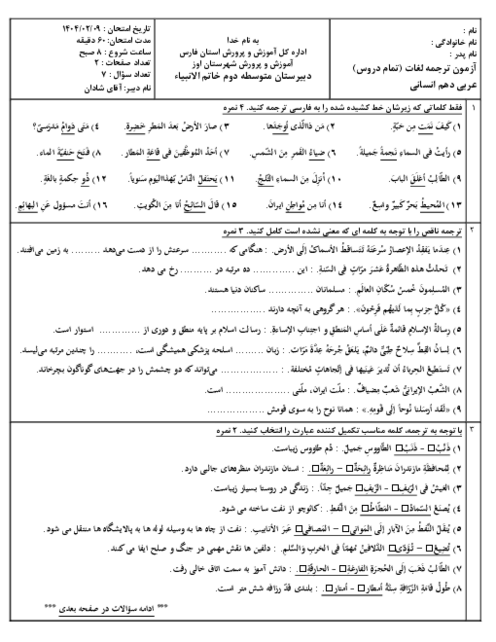 نام :
نام خانوادگی :
نام پدر :
آزمون ترجمه لغات (تمام دروس)
عربی دهم انسانی
به نام خدا
اداره کل آموزش و پرورش استان فارس
آموزش و پرورش شهرستان اوز
دبیرستان متوسطه دوم خاتم الانبیاء
تاریخ امتحان : ۱۴۰۴/۰۲/۰۹
مدت امتحان: ۶۰ دقیقه
ساعت شروع : ۸ صبح
تعداد صفحات : ۲
تعداد سؤال : ۷
نام دبیر: آقای شادان
۱ فقط کلماتی که زیرشان خط کشیده شده را به فارسی ترجمه کنید. ۴ نمره
۱) کَیفَ نَمَت مِن حَبَّةٍ. ۲) مَن ذا الَّذی أوجَدَها. ۳) صارَ الأرضُ بَعدَ المَطَرِ خَضِرَة. ۴) مَتی دَوامُ مَدرَسَتِي؟
۵) رأیتُ في السماءِ نَجمَةً جَمیلةً. ۶) ضیاءُ القَمَرِ مِنَ الشَّمسِ. ۷) أحَدُ المُوَظَّفینَ في قاعَةِ المَطار. ۸) فَتَحَ حَنَفیَّةَ الماء.
۹) الطّالِبُ أغلَقَ البابَ. ۱۰) أُنزِلَ مِنَ السماءِ الثَّلجُ. ۱۱) یَحتَفِلُ النّاسُ بِهذا الیَومِ سَنویاً. ۱۲) ذُو حِکمَةٍ بالِغَةٍ.
۱۳) المُحیطُ بَحرٌ کَبیرٌ واسِعٌ. ۱۴) أنا مِن مُواطِنِ ایران. ۱۵) قالَ السّائِحُ أنا مِنَ الکُوِیتِ. ۱۶) أنتَ مسؤول عَنِ البَهائِمِ.
۲ ترجمه ناقص را با توجه به کلمه ای که معنی نشده است کامل کنید. ۳ نمره
۱) عِندَما یَفقِدُ الإعصارُ سُرعَتَهُ تَتَساقَطُ الأسماکُ إلَی الأرضِ. : هنگامی که ........... سرعتش را از دست می‌دهد ......... به زمین می‌افتند.
۲) تَحدُثُ هذِهِ الظّاهِرةُ عَشرَ مَرّاتٍ فِي السَّنَةِ. : این ............. ده مرتبه در .......... رخ می دهد.
۳) المُسلِمونَ خُمسُ سُکّانِ العالَمِ. : مسلمانان .............. ساکنان دنیا هستند.
۴) «کُلُّ حِزبٍ بِما لَدَیهِم فَرِحُونَ». : هر گروهی به آنچه دارند .................
۵) رِسالَةُ الإسلامِ قائمةٌ عَلَی أساسِ المَنطِقِ و اجتِنابِ الإساءَةِ. : رسالت اسلام بر پایه منطق و دوری از ............. استوار است.
۶) لِسانُ القِطِّ سِلاحٌ طِبّيٌّ دائمٌ، یَلعَقُ جُرحَهُ عِدَّةَ مَرّاتٍ. : زبان ......... اسلحه پزشکی همیشگی است، ........... را چندین مرتبه می‌لیسد.
۷) تَستَطیعُ الحِرباءُ أن تُدیرَ عَینَیها في اتِّجاهاتٍ مُختَلِفَةٍ. : ................. می‌تواند که دو چشمش را در جهت‌های گوناگون بچرخاند.
۸) الشَّعبُ الإیرانيُّ شَعبٌ مِضیافٌ. : ملّت ایران، ملّتی .................. است.
۹) «لَقَد أرسَلنا نُوحاً إلَی قَومِهِ.» : همانا نوح را به سوی قومش .................
۳ با توجه به ترجمه، کلمه مناسب تکمیل کننده عبارت را انتخاب کنید. ۲ نمره
۱) ذَنْبُ□ – ذَنَبُ□ الطّاووسِ جَمیلٌ. : دُم طاووس زیباست.
۲) لِمُحافَظَةِ مازَندَرانَ مَناظِرةٌ رائِحَةٌ□ – رائِعَةٌ□. : استان مازندران منظره‌های جالبی دارد.
۳) العَیشُ في الرّیفِ□ – الرَّیفِ□ جَمیلٌ جِدّاً. : زندگی در روستا بسیار زیباست.
۴) یُصنَعُ السَّمادُ□ – المَطّاطُ□ مِنَ النِّفطِ. : کائوچو از نفت ساخته می شود.
۵) یُنقَلُ النِّفطُ مِنَ الآبارِ إلَی المَوانِي□ – المَصافِي□ عَبرَ الأنابیبِ. : نفت از چاه ها به وسیله لوله ها به پالایشگاه ها منتقل می شود.
۶) تُضیعُ□ – تُؤَدِّي□ الدَّلافینُ مُهِمّاً في الحَربِ وَالسِّلمِ. : دلفین ها نقش مهمی در جنگ و صلح ایفا می کنند.
۷) الطّالِبُ ذَهَبَ إلَی الحُجرَةِ الفارِغَةِ□ – الحارِقَةِ□. : دانش آموز به سمت اتاق خالی رفت.
۸) طُولُ قامَةِ الزَّرافَةِ سِتَّةُ أمطارٍ□ – أمتارٍ□. : بلندی قدّ زرافه شش متر است.
*** ادامه سؤالات در صفحه بعدی ***